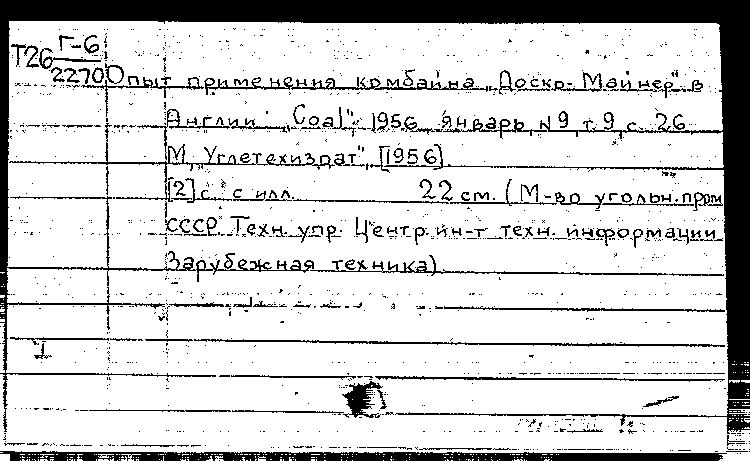 Т26 Г-6
2270 Опыт применения комбайна „Доско-Майнер" в
Англии „Coal", 1956, январь, N9, т.9, с. 26
М, „Углетехиздат", [1956].
[2] с. с илл. 22 см. (М-во угольн. пром
СССР Техн. упр. Центр. ин-т техн. информации
Зарубежная техника)
1